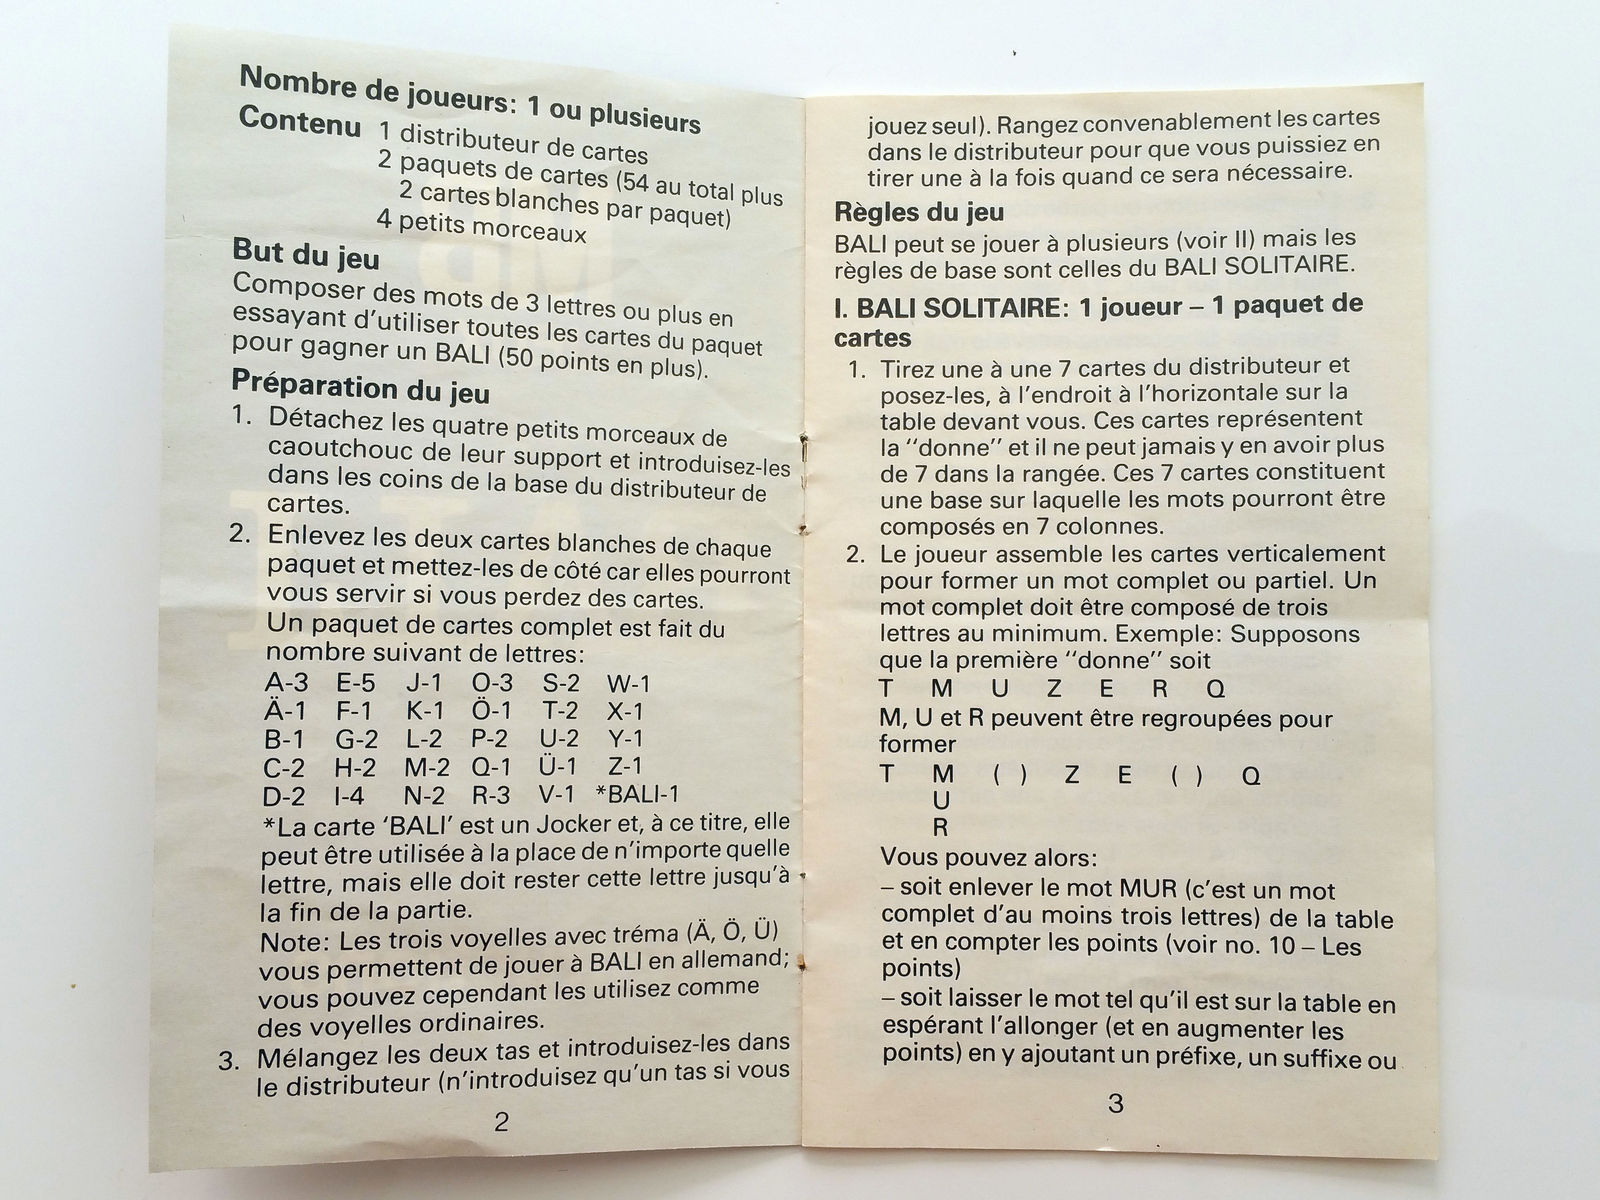 Nombre de joueurs: 1 ou plusieurs
Contenu 1 distributeur de cartes
2 paquets de cartes (54 au total plus
2 cartes blanches par paquet)
4 petits morceaux
But du jeu
Composer des mots de 3 lettres ou plus en
essayant d'utiliser toutes les cartes du paquet
pour gagner un BALI (50 points en plus).
Préparation du jeu
1. Détachez les quatre petits morceaux de
caoutchouc de leur support et introduisez-les
dans les coins de la base du distributeur de
cartes.
2. Enlevez les deux cartes blanches de chaque
paquet et mettez-les de côté car elles pourront
vous servir si vous perdez des cartes.
Un paquet de cartes complet est fait du
nombre suivant de lettres:
A-3 E-5 J-1 O-3 S-2 W-1
Ä-1 F-1 K-1 Ö-1 T-2 X-1
B-1 G-2 L-2 P-2 U-2 Y-1
C-2 H-2 M-2 Q-1 Ü-1 Z-1
D-2 I-4 N-2 R-3 V-1 *BALI-1
*La carte 'BALI' est un Jocker et, à ce titre, elle
peut être utilisée à la place de n'importe quelle
lettre, mais elle doit rester cette lettre jusqu'à
la fin de la partie.
Note: Les trois voyelles avec tréma (Ä, Ö, Ü)
vous permettent de jouer à BALI en allemand;
vous pouvez cependant les utilisez comme
des voyelles ordinaires.
3. Mélangez les deux tas et introduisez-les dans
le distributeur (n'introduisez qu'un tas si vous
2
jouez seul). Rangez convenablement les cartes
dans le distributeur pour que vous puissiez en
tirer une à la fois quand ce sera nécessaire.
Règles du jeu
BALI peut se jouer à plusieurs (voir II) mais les
règles de base sont celles du BALI SOLITAIRE.
I. BALI SOLITAIRE: 1 joueur – 1 paquet de
cartes
1. Tirez une à une 7 cartes du distributeur et
posez-les, à l'endroit à l'horizontale sur la
table devant vous. Ces cartes représentent
la "donne" et il ne peut jamais y en avoir plus
de 7 dans la rangée. Ces 7 cartes constituent
une base sur laquelle les mots pourront être
composés en 7 colonnes.
2. Le joueur assemble les cartes verticalement
pour former un mot complet ou partiel. Un
mot complet doit être composé de trois
lettres au minimum. Exemple: Supposons
que la première "donne" soit
T M U Z E R Q
M, U et R peuvent être regroupées pour
former
T M ( ) Z E ( ) Q
U
R
Vous pouvez alors:
– soit enlever le mot MUR (c'est un mot
complet d'au moins trois lettres) de la table
et en compter les points (voir no. 10 – Les
points)
– soit laisser le mot tel qu'il est sur la table en
espérant l'allonger (et en augmenter les
points) en y ajoutant un préfixe, un suffixe ou
3